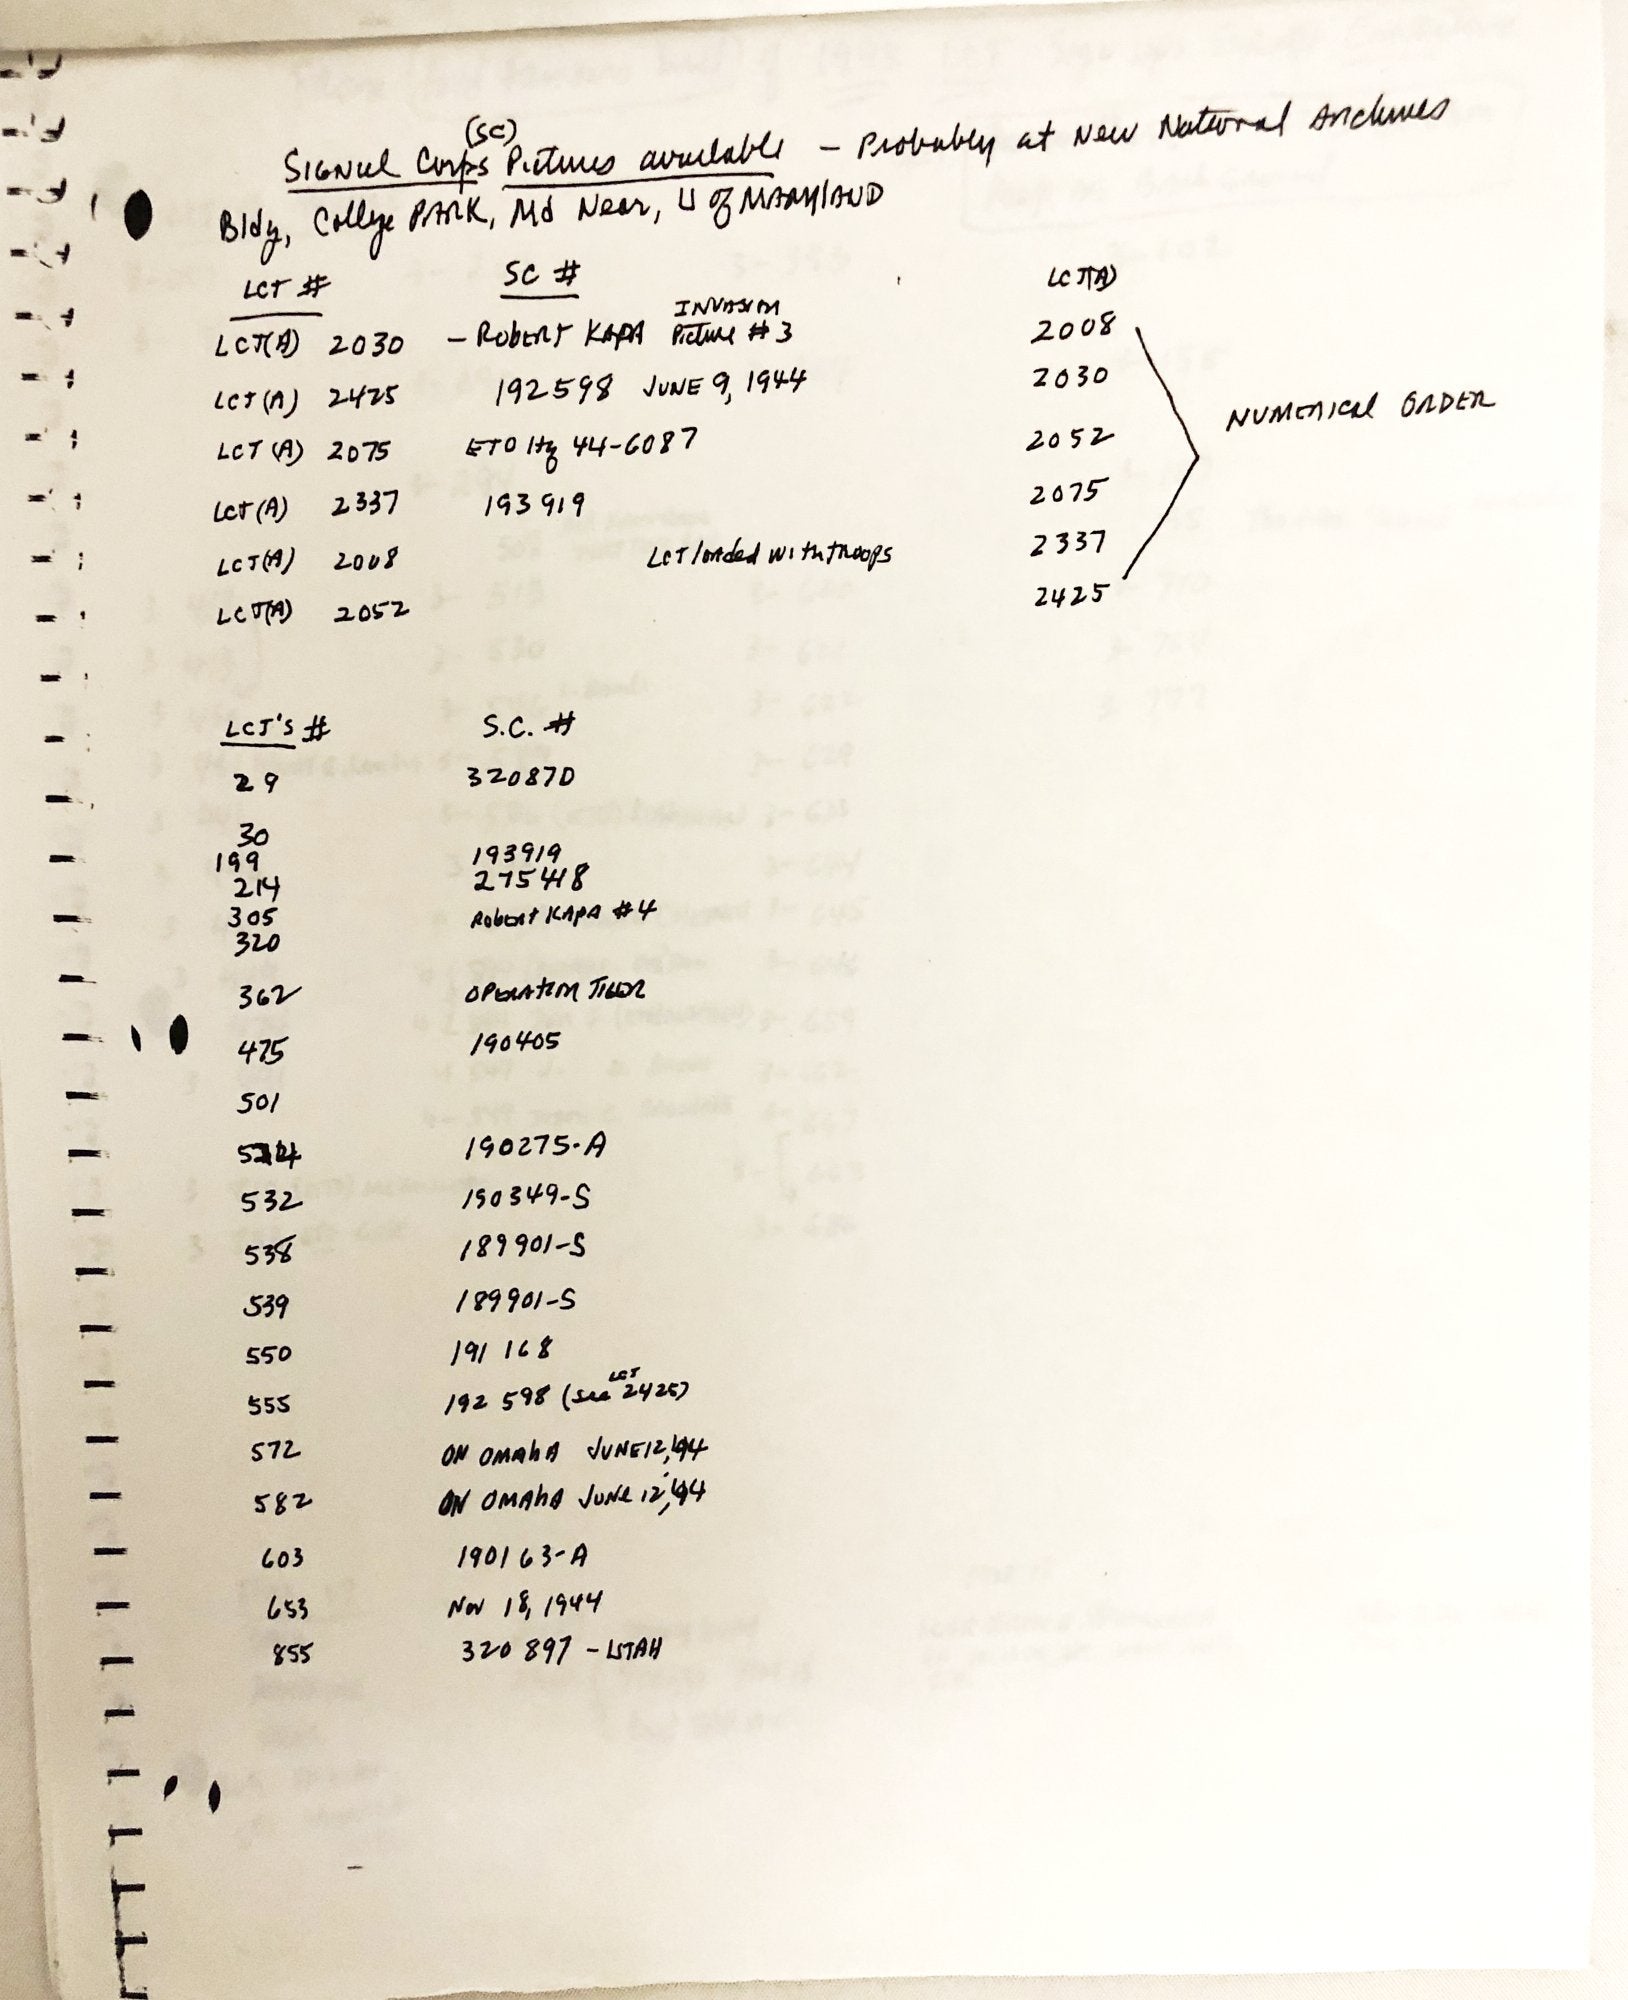 (SC)
Signal Corps Pictures available – Probably at New National Archives
Bldg, College PARK, Md Near, U of MARYlAND
LCT # SC # LCT(A)
LCT(A) 2030 – RobERT KAPA INVASION Picture #3 2008
LCT(A) 2425 192598 JUNE 9, 1944 2030
NUMERICAL ORDER
LCT (A) 2075 ETO Hq 44-6087 2052
LCT(A) 2337 193919 2075
LCT(A) 2008 LCT loaded with troops 2337
LCT(A) 2052 2425
LCT'S # S.C. #
29
30
199 193919
214
305 RobERt KAPA #4
320
362 OPERATION TIGER
475 190405
501
190275-A
532 190349-S
538 189901-S
539 189901-S
550 191 168
555 192 598 (see LCT 2425)
572 ON OMAhA JUNE 12, '44
582 ON OMAhA JUNE 12, '44
603 190163-A
653 Nov 18, 1944
855 320 897 – UTAH